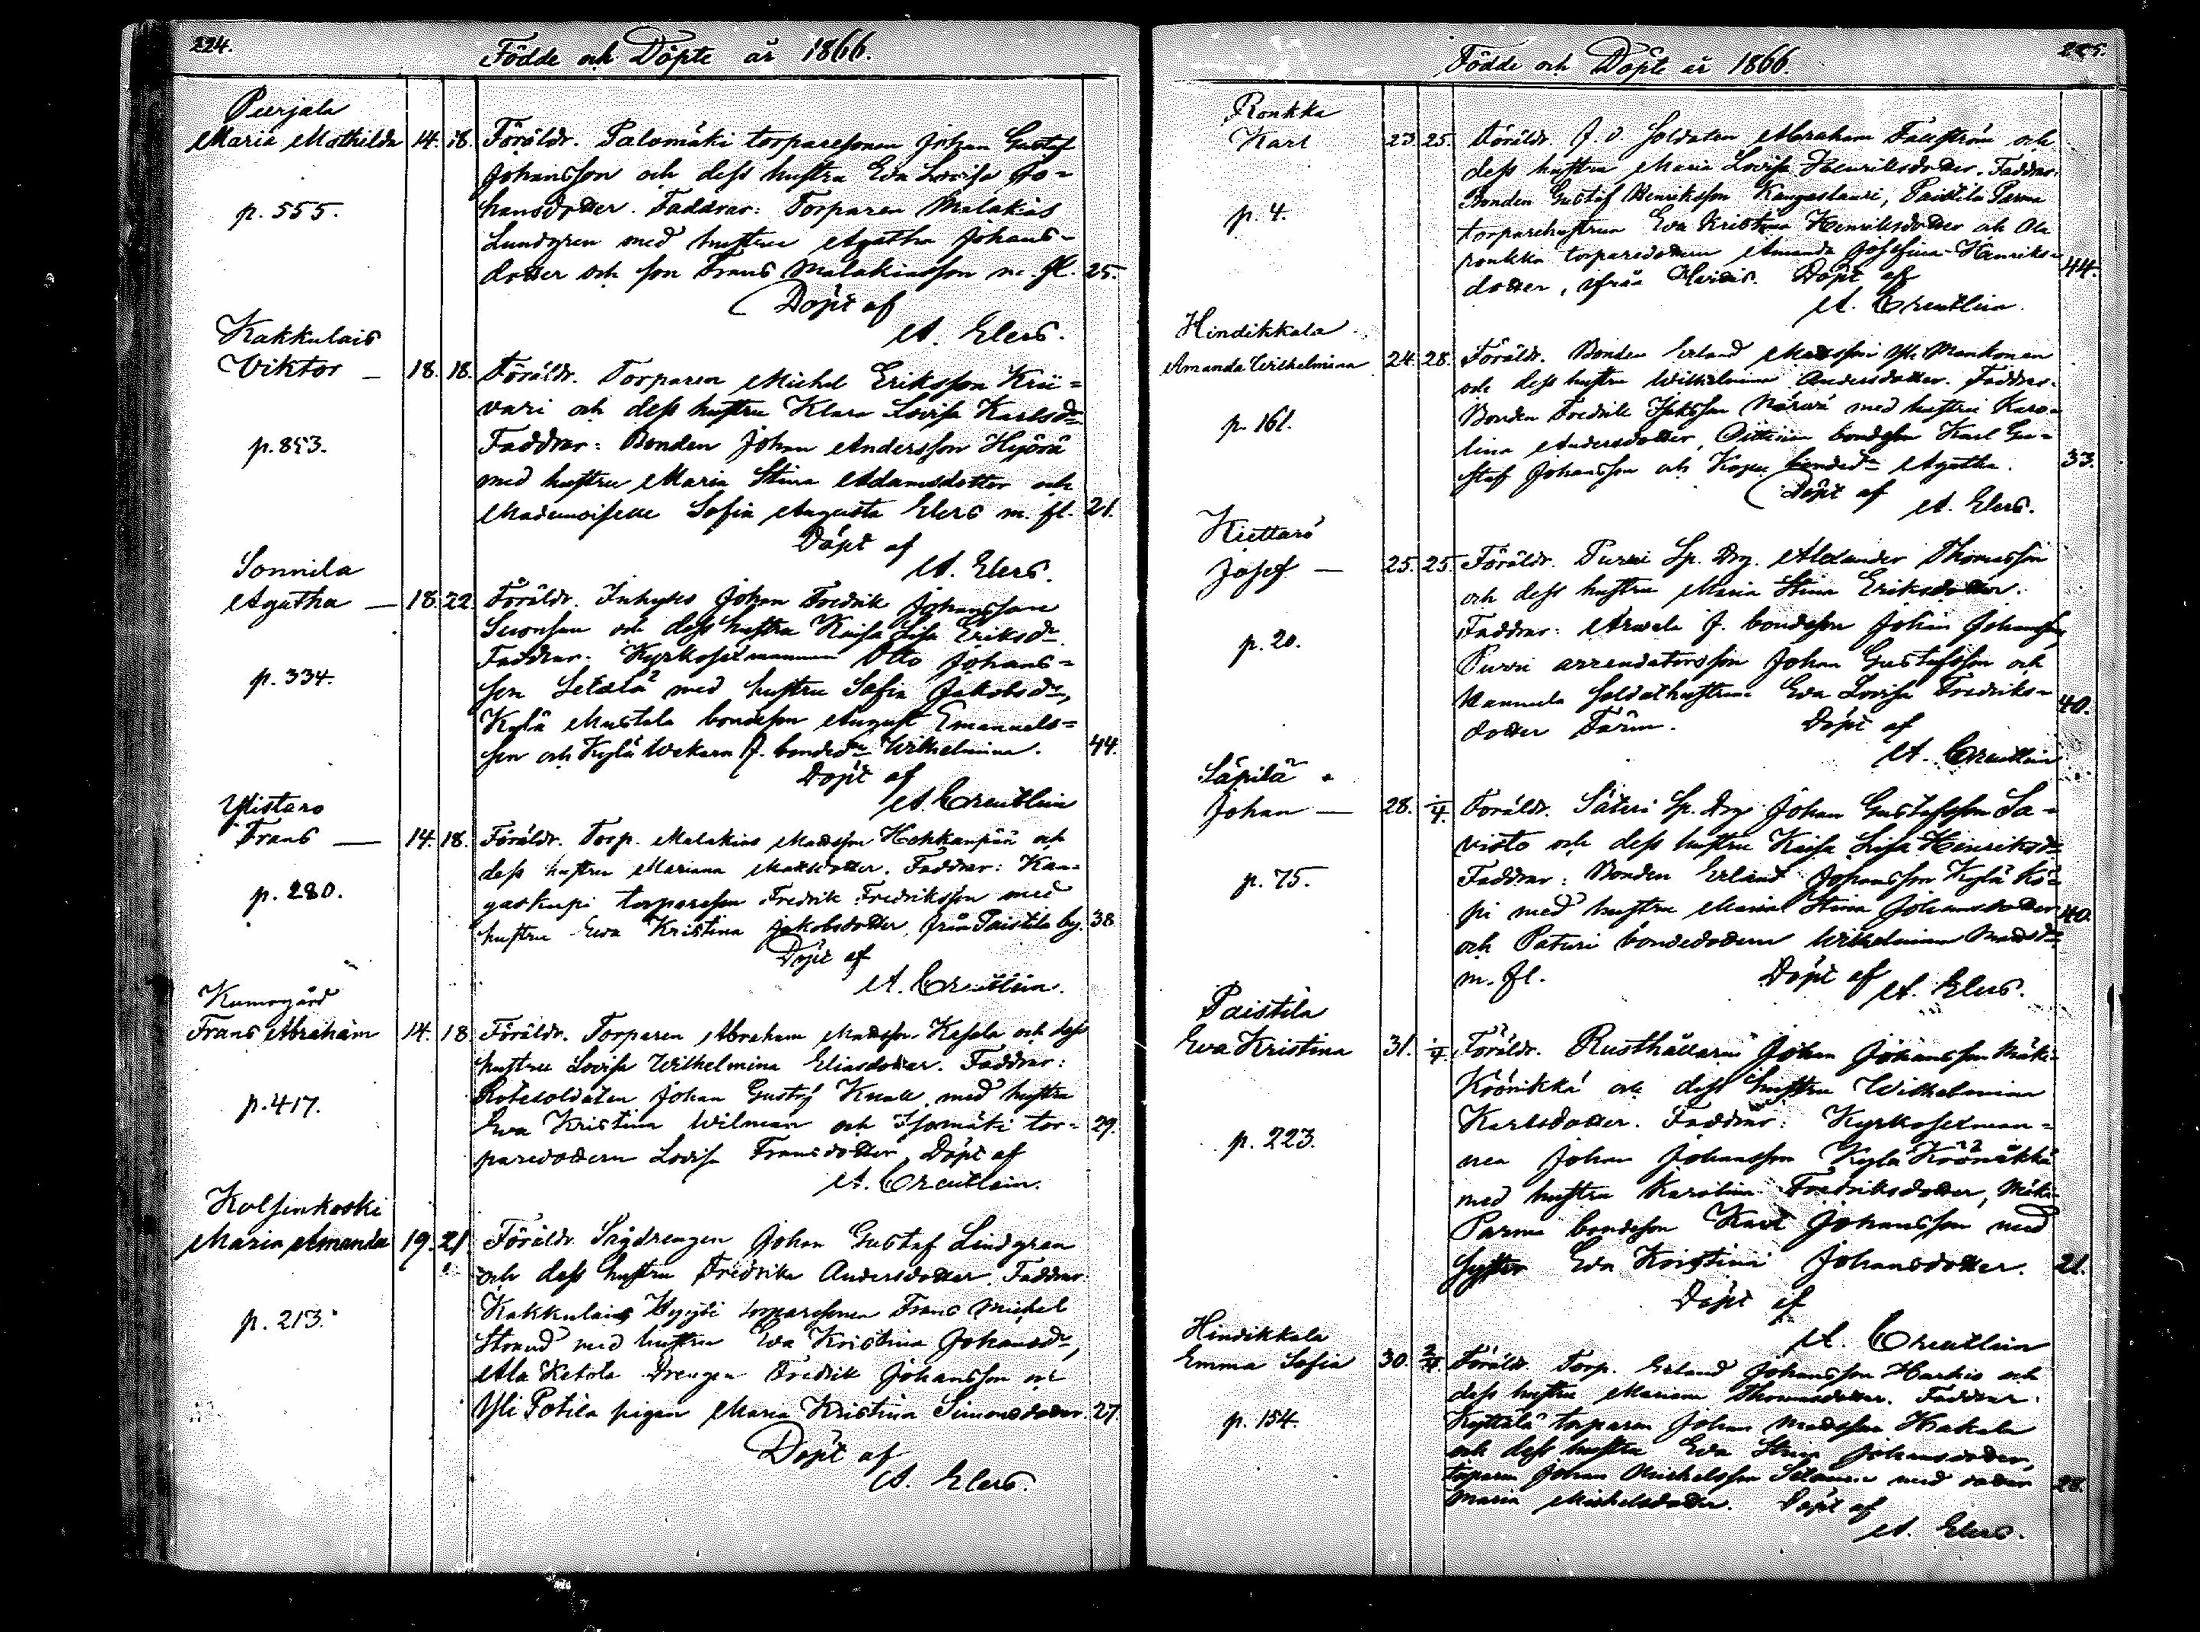 224.
Födde och Döpte år 1866.
Peerjala
Maria Mathilda 14. 18. Föräldr. Palomäki torparesonen Johan Gustaf
Johansson och dess hustru Eva Lovisa Jo-
p. 555.
hansdotter. Faddrar: Torparen Malakias
Lundgren med hustru Agatha Johans-
dotter och son Frans Malakiasson m. fl. 25.
Döpt af
A. Elers.
Kakkulais
Viktor 18. 18. Föräldr. Torparen Michel Eriksson Krii-
vari och dess hustru Klara Lovisa Karlsdr
p. 853.
Faddrar: Bonden Johan Andersson Hyörä
med hustru Maria Stina Adamsdotter och
Mademoiselle Sofia Augusta Elers m. fl. 21.
Döpt af
A. Elers.
Sonnila
Agatha 18. 22. Föräldr. Inhyses Johan Fredrik Johansson
och dess hustru Kaisa Lisa Eriksdr
Faddrar: Kyrkosexmannen Otto Johans-
p. 334.
son med hustru Sofia Jakobsdr,
Kylä Mustala bondeson August Emanuels-
son och Kylä Wekara f. bondedr Wilhelmina. 44.
Döpt af
A. Creutlein
Ylistaro
Frans 14. 18. Föräldr. Torp. Malakias Mattsson Hohkanpää och
dess hustru Mariana Mattsdotter. Faddrar: Kan-
p. 280.
gaskupi torpareson Fredrik Fredriksson med
hustru Eva Kristina Jakobsdotter, från Paistila by. 38
Döpt af
A. Creutlein.
Kumogård
Frans Abraham 14. 18 Föräldr. Torparen Abraham Mattsson Kasala och dess
hustru Lovisa Wilhelmina Eliasdotter. Faddrar:
p. 417.
Rotesoldaten Johan Gustaf med hustru
Eva Kristina Wilman och Isomäki tor- 29.
paredottern Lovisa Fransdotter. Döpt af
A. Creutlein.
Kolsinkoski
Maria Amanda 19. 21. Föräldr. Sågdrengen Johan Gustaf Lindgren
och dess hustru Fredrika Andersdotter. Faddrar:
p. 213.
Kakkulais torparesonen Frans Michel
Strand med hustru Eva Kristina Johansdr,
Ala Ketola Drengen Fredrik Johansson och
Yli Potila pigan Maria Kristina Simonsdotter. 27
Döpt af
A. Elers.
225.
Födde och Döpte år 1866.
Ronkka
Karl 23. 25. Föräldr. f. d. Soldaten Abraham Fallström och
dess hustru Maria Lovisa Henriksdotter. Faddrar:
p. 4.
Bonden Gustaf Henriksson Kangaslauri, Paistila Parma
torparehustrun Eva Kristina Henriksdotter och Ala
ronkka torparedottern Amanda Josefina Henriks- 44.
dotter, ifrån Hvidis. Döpt af
A. Creutlein.
Hindikkala
Amanda Wilhelmina 24. 28. Föräldr. Bonden Erland Mattsson Yli Mankonen
och dess hustru Wilhelmina Andersdotter. Faddrar:
p. 161.
Bonden Fredrik Isaksson Närvä med hustru Karo-
lina Andersdotter, bondeson Karl Gu-
staf Johansson och bondedr Agatha. 33.
Döpt af A. Elers.
Kiettarö
Josef 25. 25. Föräldr. Purri Sp. Drg. Alexander Thomasson
och dess hustru Maria Stina Eriksdotter.
p. 20.
Faddrar: Arwela f. bondeson Johan Johansson,
Purri arrendatorsson Johan Gustafsson och
Mannula Soldathustrun Eva Lovisa Fredriks- 40.
dotter Färm. Döpt af
A. Creutlein
Säpilä
Johan 28. 1/4. Föräldr. Säteri Sp. Drg Johan Gustafsson Sa-
visto och dess hustru Kaisa Lisa Henriksdr
p. 75.
Faddrar: Bonden Erland Johansson Kylä Kö-
pi med hustru Maria Stina Johansdotter 40.
och Paturi bondedottern Wilhelmina Mattsdr
m. fl. Döpt af A. Elers.
Paistila
Eva Kristina 31. 1/4. Föräldr. Rusthållaren Johan Johansson Mäki-
Köönikkä och dess hustru Wilhelmina
p. 223.
Karlsdotter. Faddrar: Kyrkosexman-
nen Johan Johansson Kylä Köönikkä
med hustru Karolina Fredriksdotter, Mäki-
Parma bondeson Karl Johansson med
syster Eva Kristina Johansdotter. 21.
Döpt af
A. Creutlein
Hindikkala
Emma Sofia 30. 2/4. Föräldr. Torp. Erland Johansson Harkio och
dess hustru Mariana Thomasdotter. Faddrar:
p. 154.
Kyttälä torparen Johan Mattsson Hakala
och dess hustru Eva Stina Johansdotter,
torparen Johan Michelsson med dotter 28.
Maria Michelsdotter. Döpt af
A. Elers.